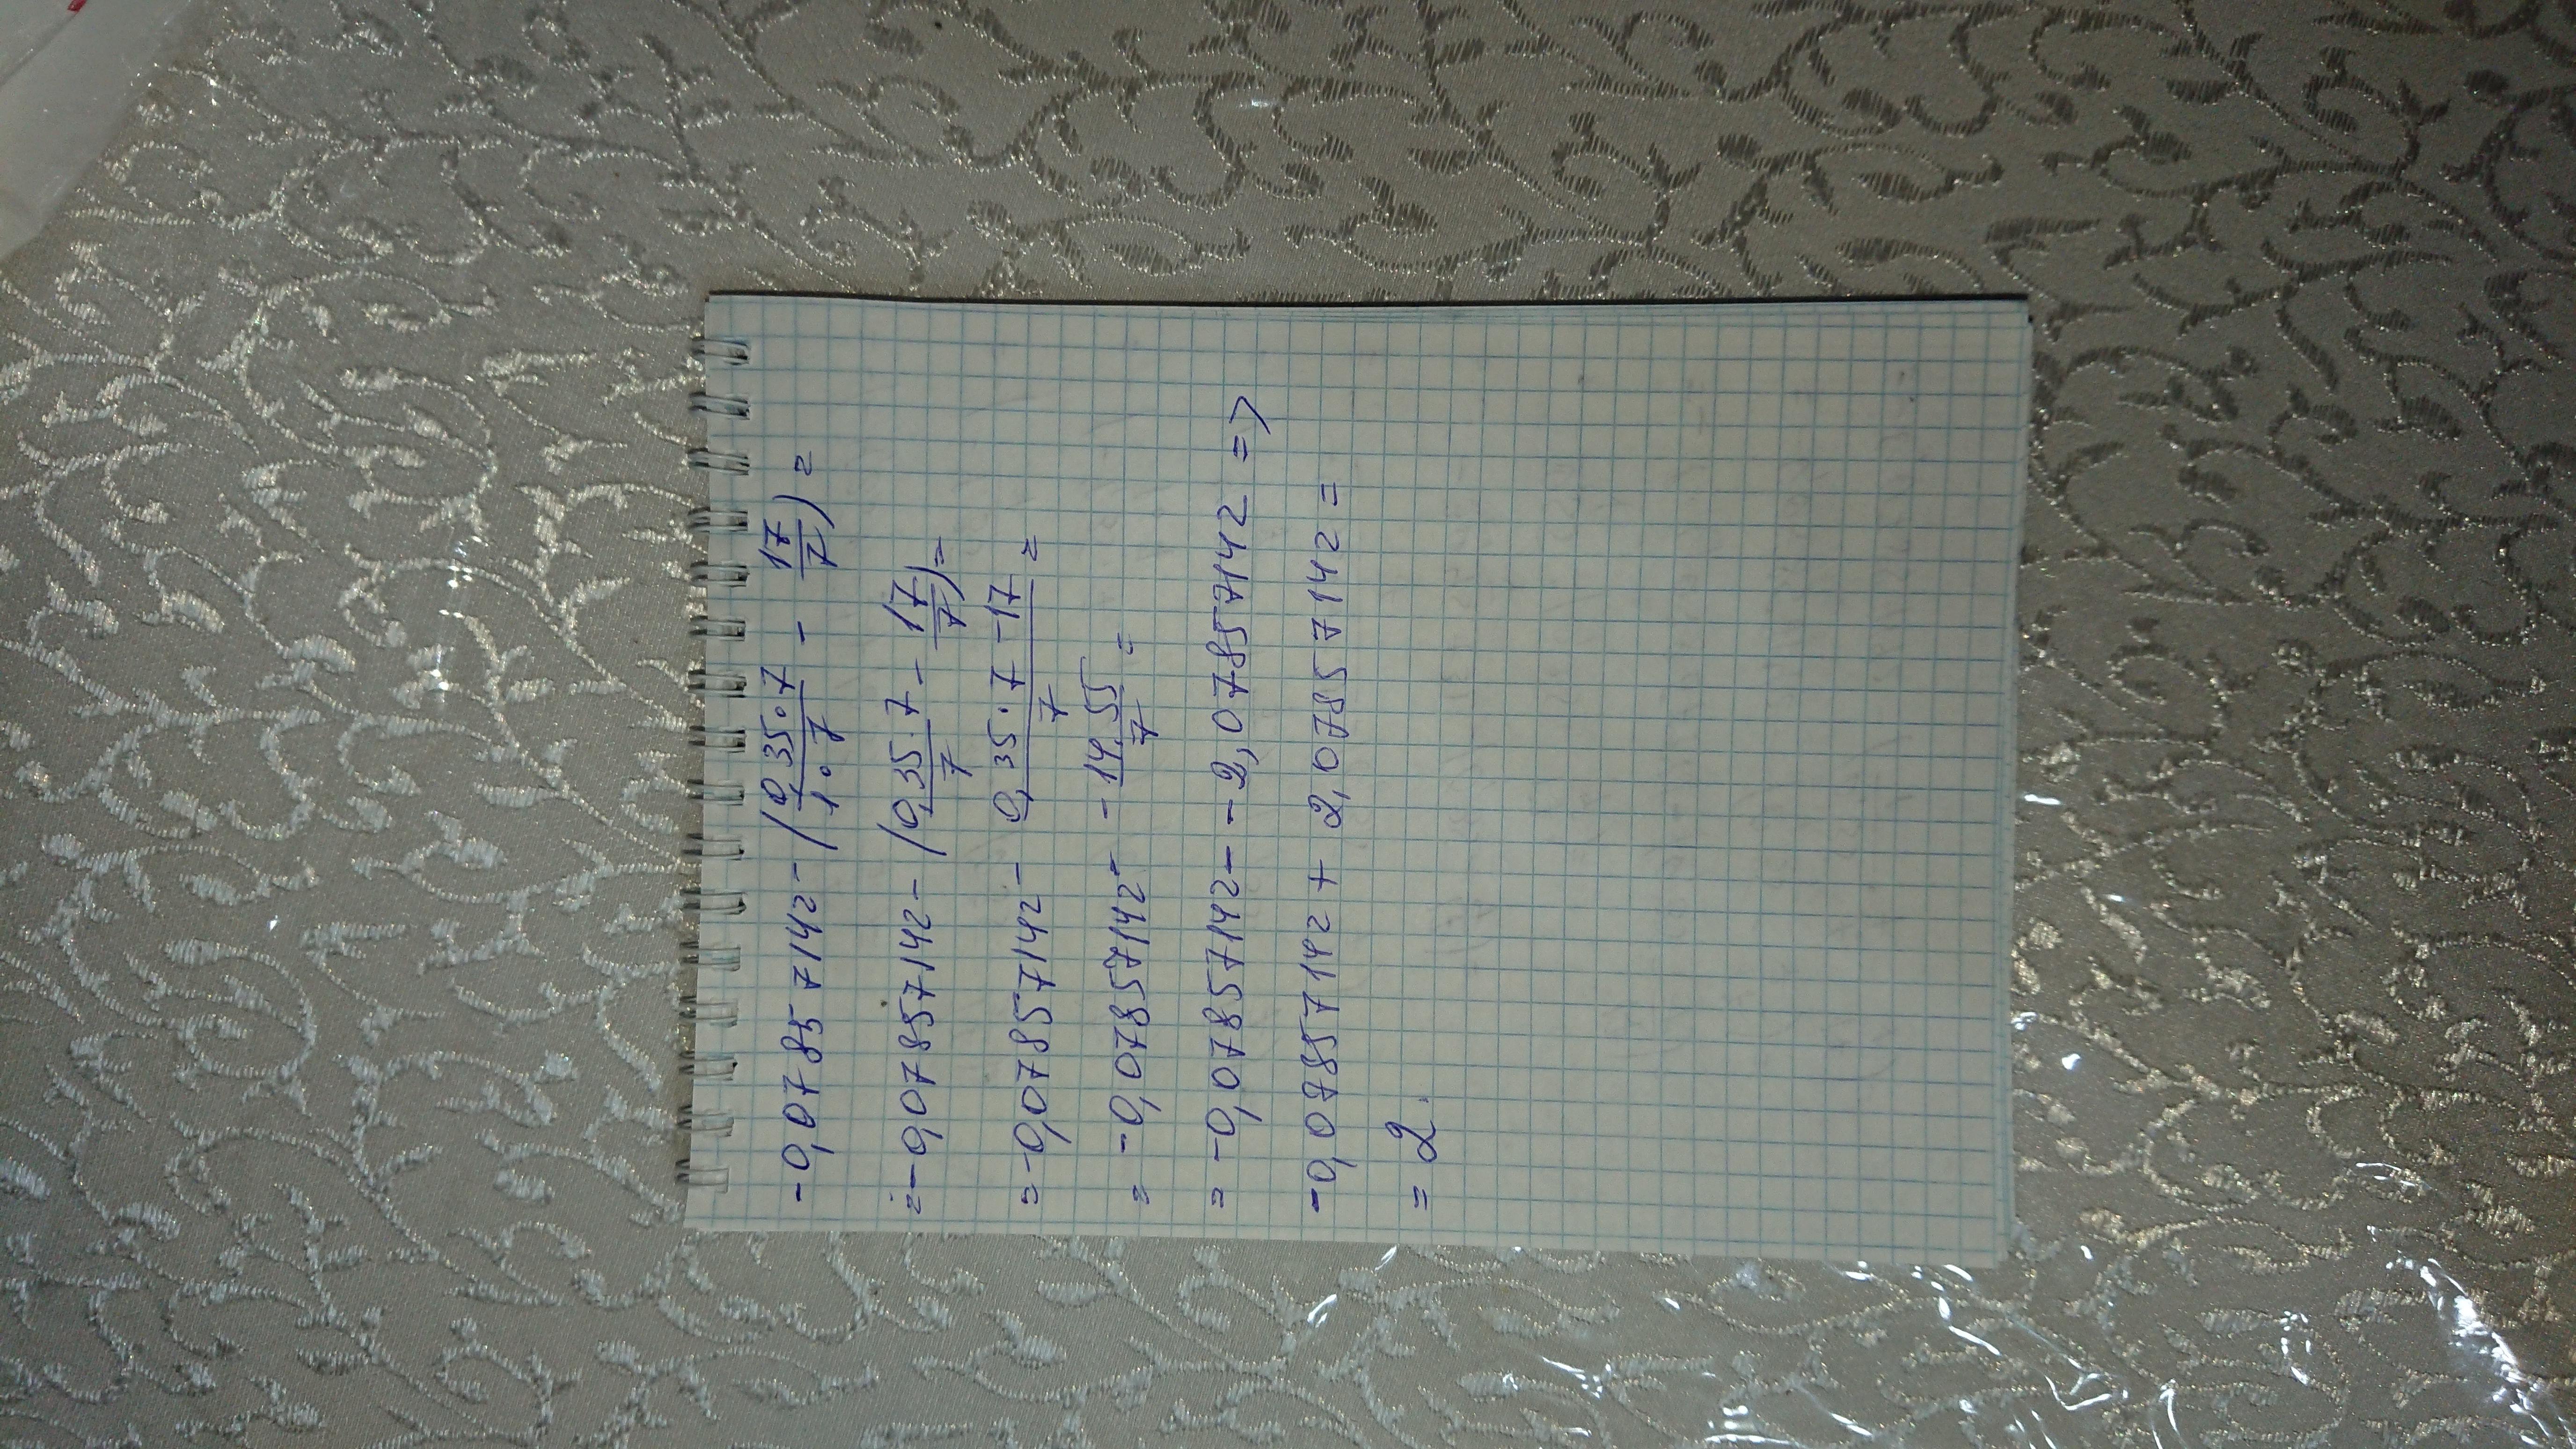 -0,078557142-(0,35·7/1·7 - 17/7)=
=-0,078557142-(0,35·7/7-17/7)=
=-0,078557142- 0,35·7-17/7 =
= -0,078557142- -14,55/7 =
= -0,078557142--2,078557142 =>
-0,078557142 + 2,078557142=
= 2.